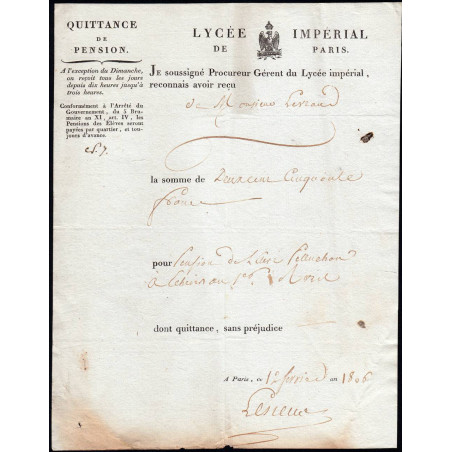 QUITTANCE
DE
PENSION.
A l'exception du Dimanche,
on reçoit tous les jours
depuis dix heures jusqu'à
trois heures.
Conformément à l'Arrêté du
Gouvernement, du 5 Bru-
maire an XI, art. IV, les
Pensions des Elèves seront
payées par quartier, et tou-
jours d'avance.
LYCÉE IMPÉRIAL
DE PARIS.
JE soussigné Procureur Gérent du Lycée impérial,
reconnais avoir reçu
de Monsieur
la somme de deux cent cinquante
francs
pour pension de
à
dont quittance, sans préjudice
A Paris, ce 1er an 1806